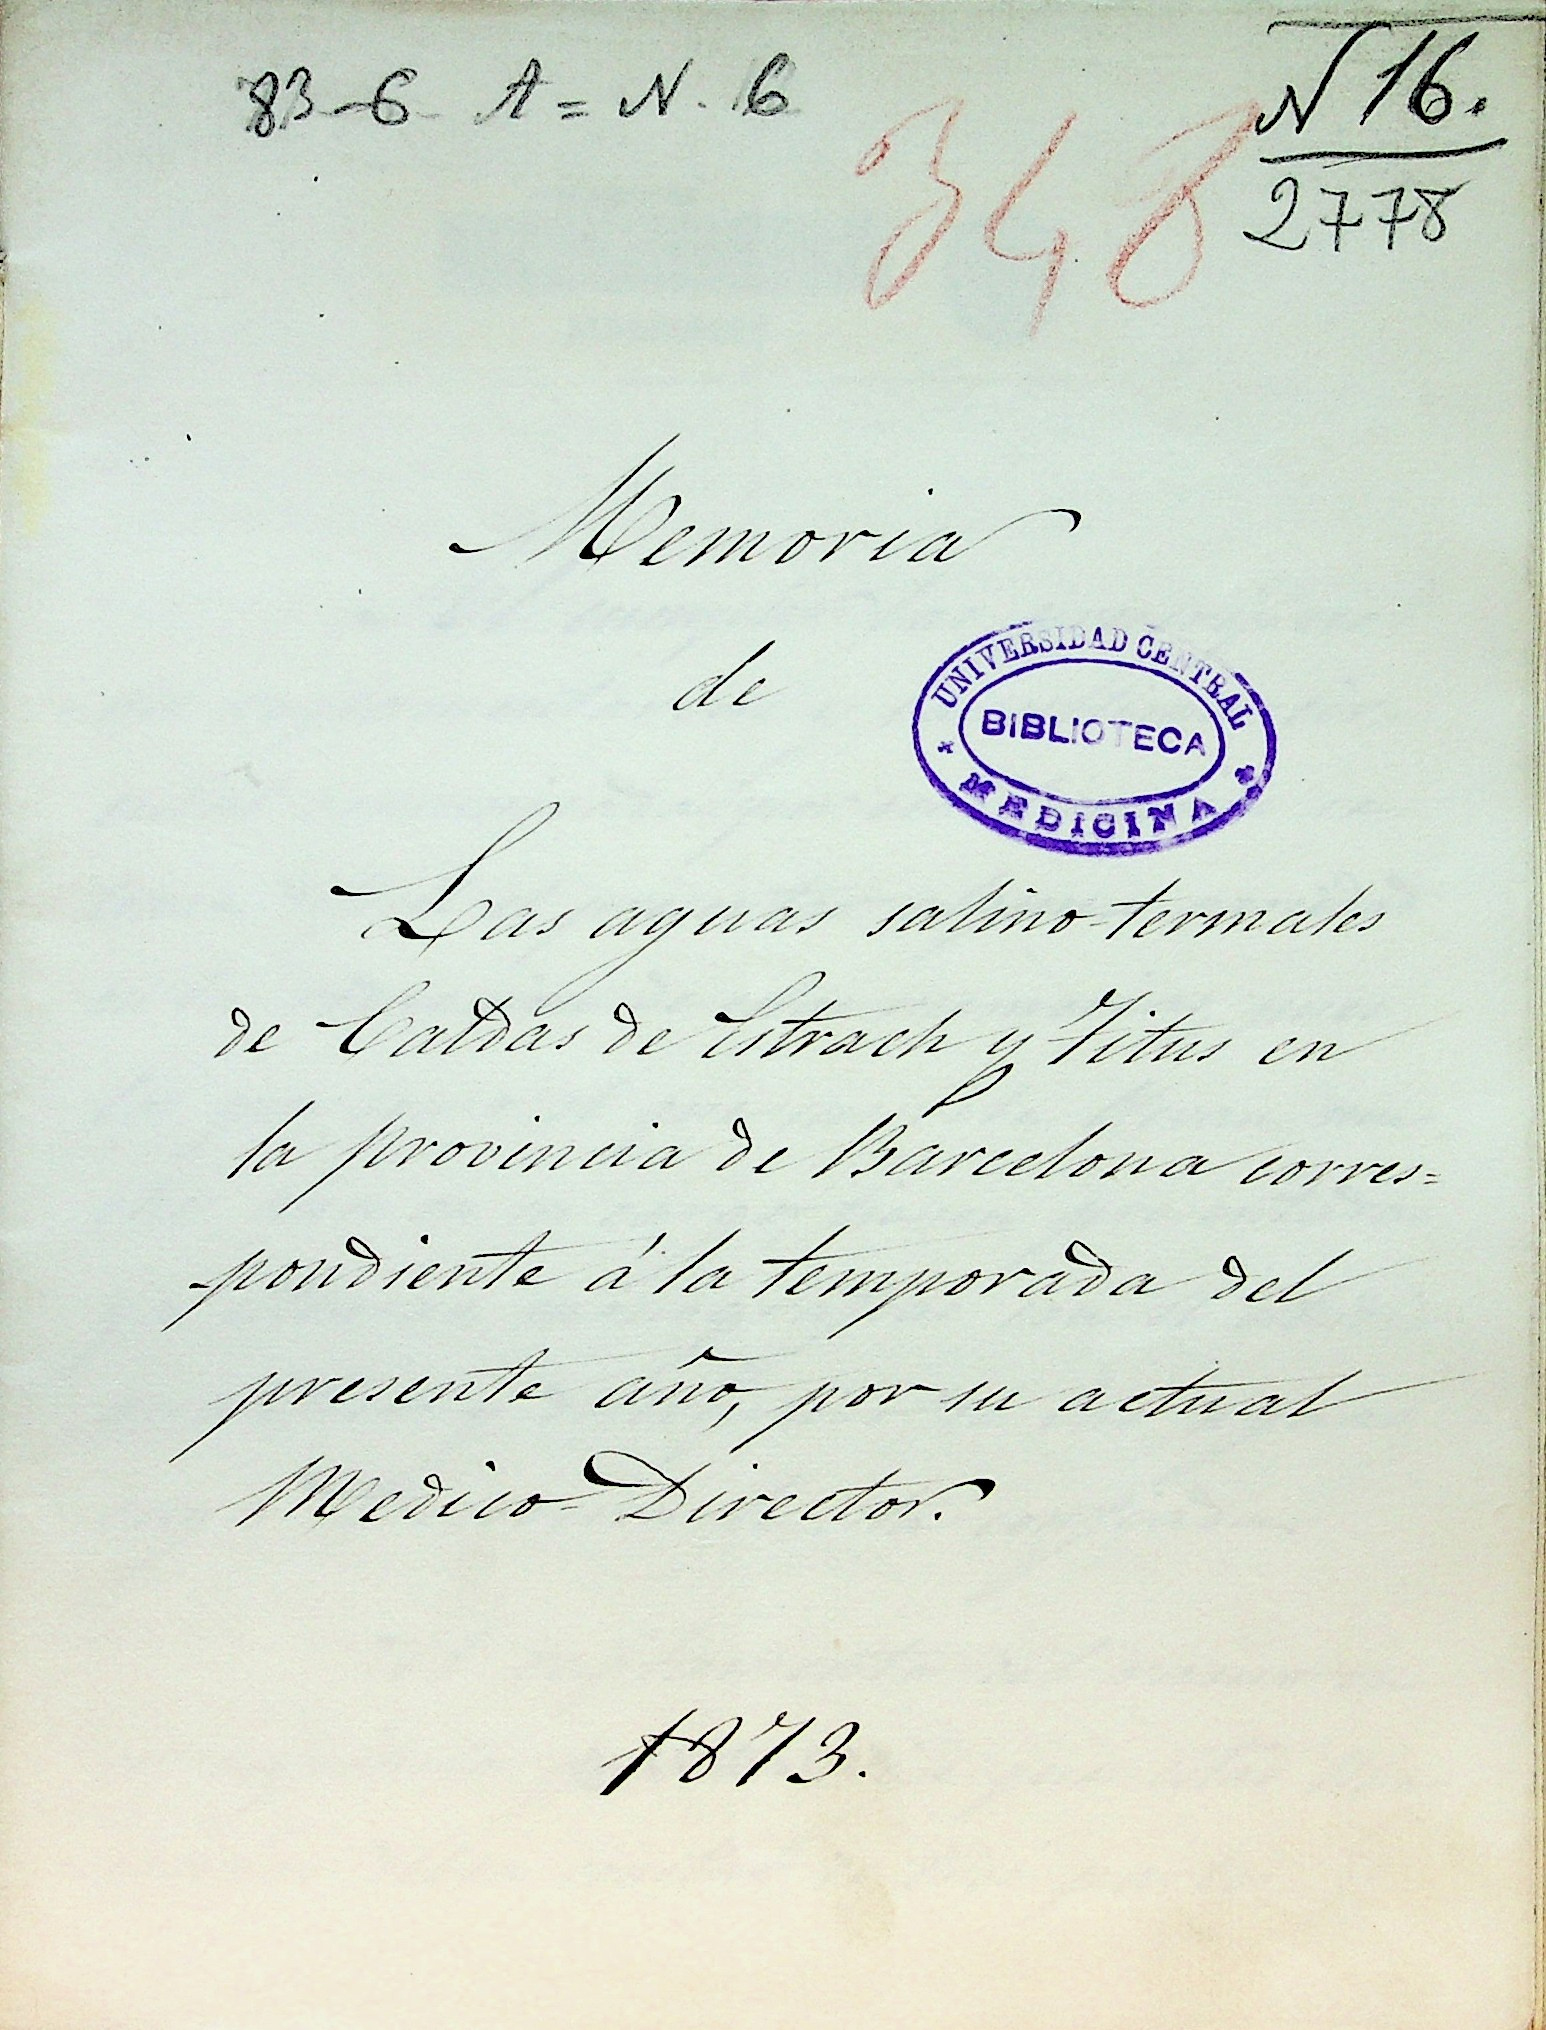 83-6 A = N. 6
N 16.
2778
348
Memoria
de
UNIVERSIDAD CENTRAL
BIBLIOTECA
MEDICINA
Las aguas salino-termales
de Caldas de Estrach y Titus en
la provincia de Barcelona corres=
pondiente á la temporada del
presente año, por su actual
Medico-Director.
1873.